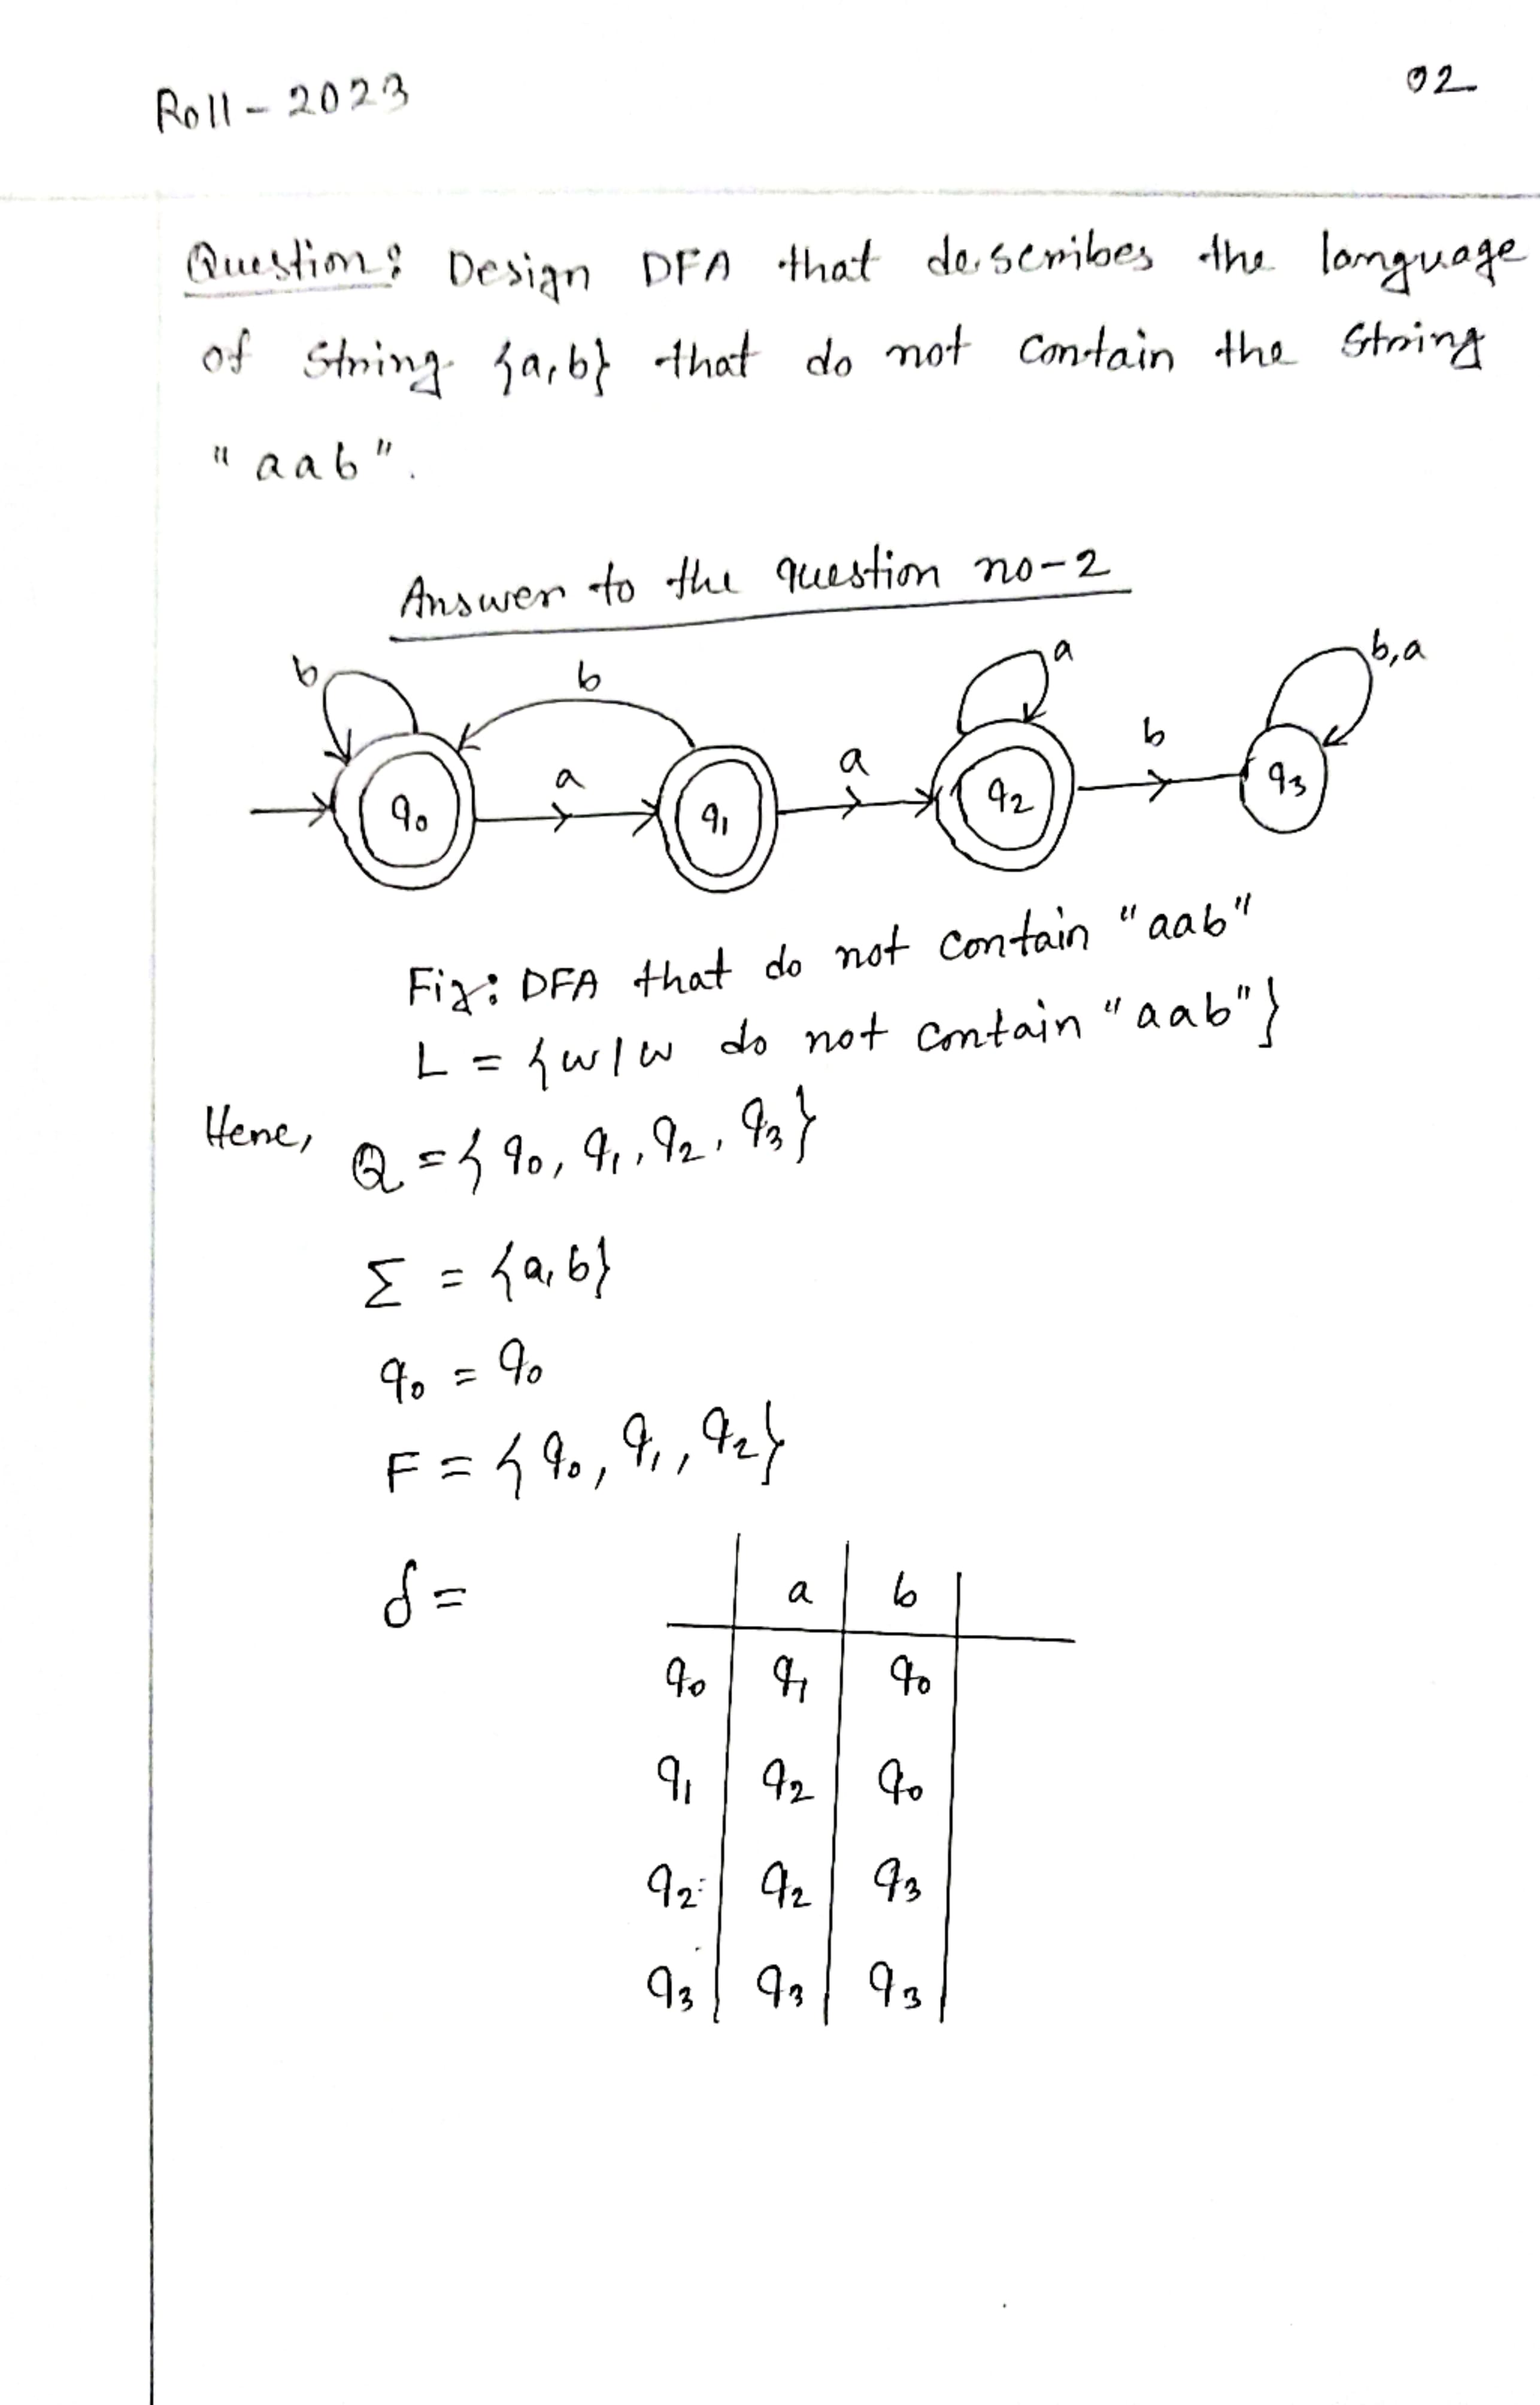 Roll - 2023
02
Question: Design DFA that describes the language
of string {a,b} that do not contain the string
"aab".
Answer to the question no-2
b b a b,a
a a b
q₀ q₁ q₂ q₃
Fig: DFA that do not contain "aab"
L = {w/w do not contain "aab"}
Here, Q = {q₀, q₁, q₂, q₃}
Σ = {a,b}
q₀ = q₀
F = {q₀, q₁, q₂}
δ = a b
q₀ q₁ q₀
q₁ q₂ q₀
q₂ q₂ q₃
q₃ q₃ q₃